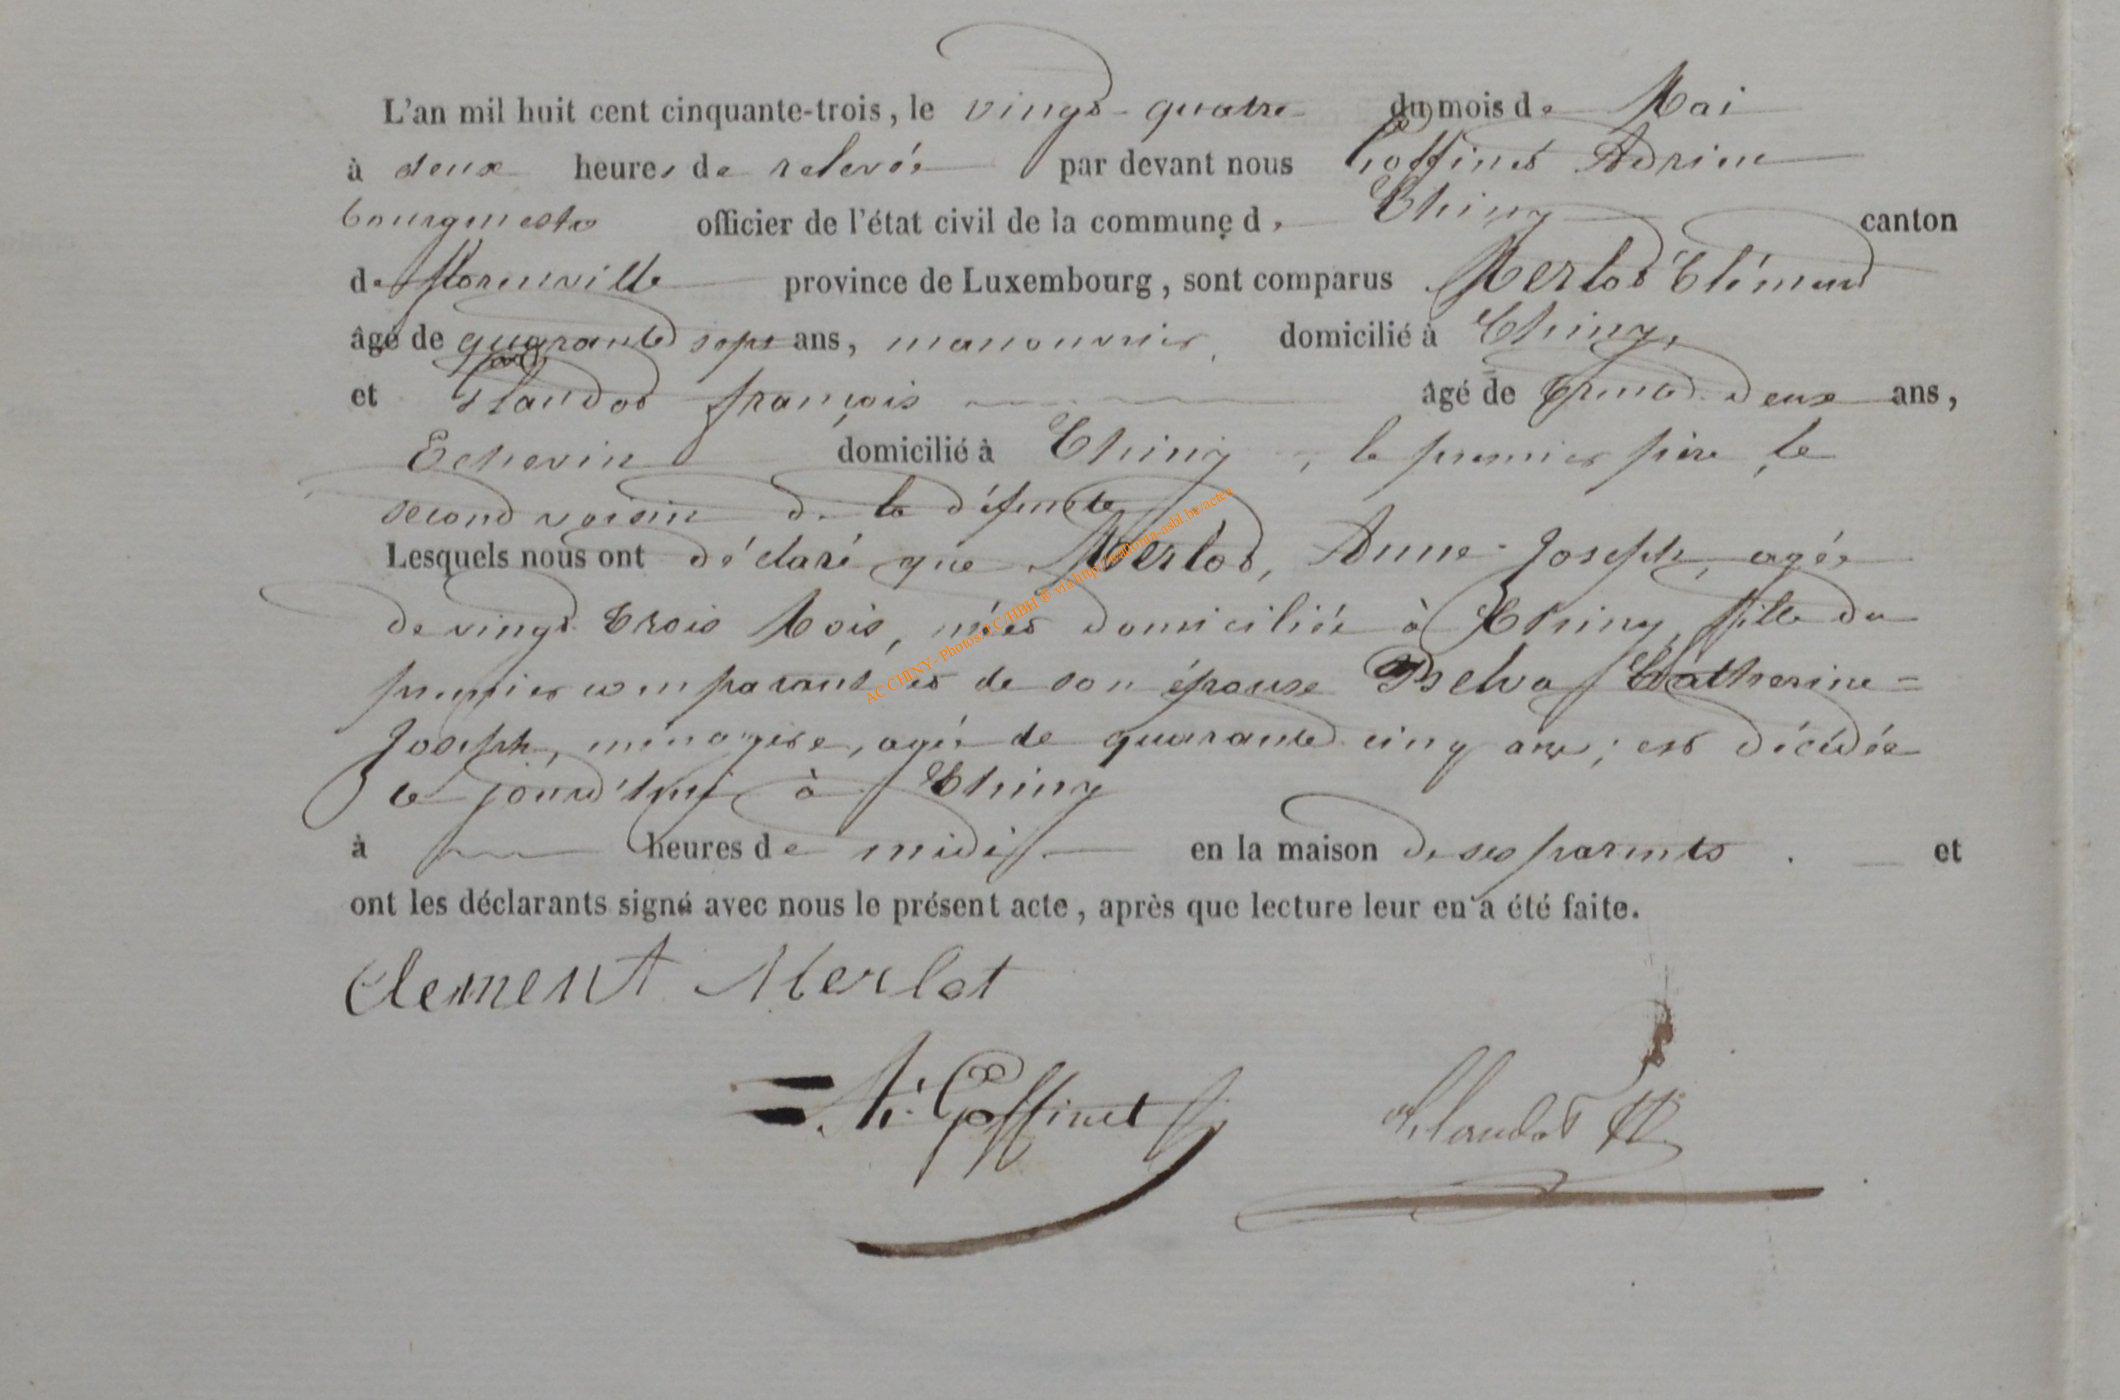 L'an mil huit cent cinquante-trois, le vingt-quatre du mois de Mai
à deux heures de relevée par devant nous Goffinet Adrien
bourgmestre officier de l'état civil de la commune de Chiny canton
de florenville province de Luxembourg, sont comparus Merlot Clément
âgé de quarante sept ans, manouvrier, domicilié à Chiny,
et François âgé de trente deux ans,
Echevin domicilié à Chiny, le premier père, le
second voisin de la défunte
Lesquels nous ont déclaré que Merlot, Anne-Joseph, agée
de vingt trois Mois, née et domiciliée à Chiny, fille du
premier comparant et de son épouse Catherine=
Joseph, ménagère, agée de quarante cinq ans; est décédée
ce jourd'hui à Chiny
à heures de midi en la maison de ses parents. et
ont les déclarants signé avec nous le présent acte, après que lecture leur en a été faite.
Clement Merlot
Goffinet